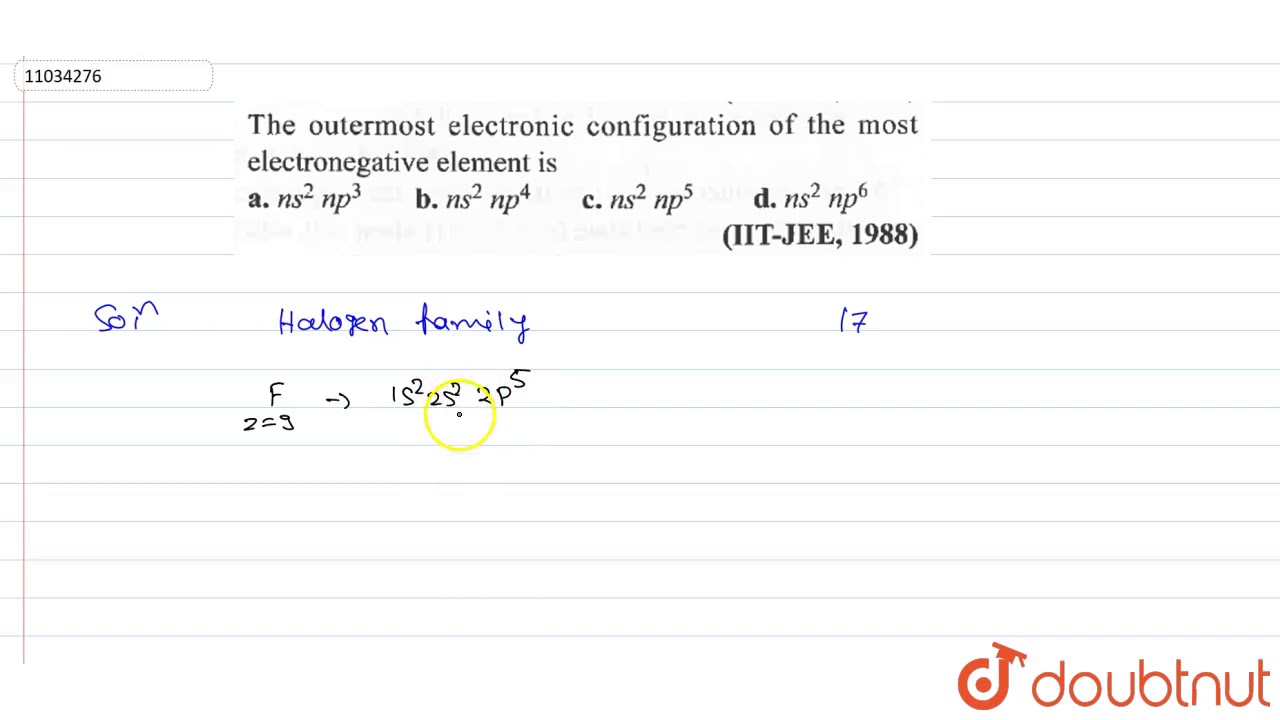 11034276
The outermost electronic configuration of the most
electronegative element is
a. ns² np³ b. ns² np⁴ c. ns² np⁵ d. ns² np⁶
(IIT-JEE, 1988)
Soln Halogen family 17
F → 1s² 2s² 2p⁵
z=9
doubtnut